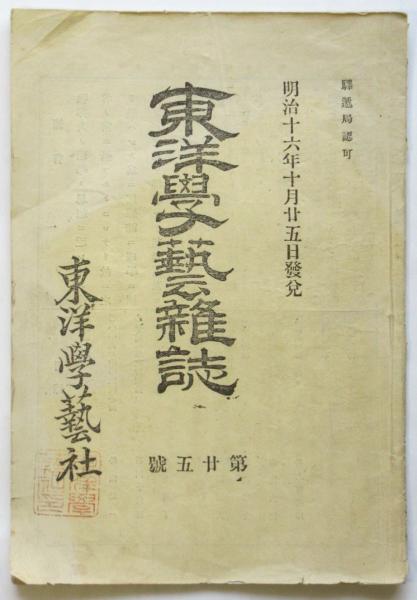 驛遞局認可
明治十六年十月廿五日發兌
東洋學藝雜誌
第廿五號
東洋學藝社